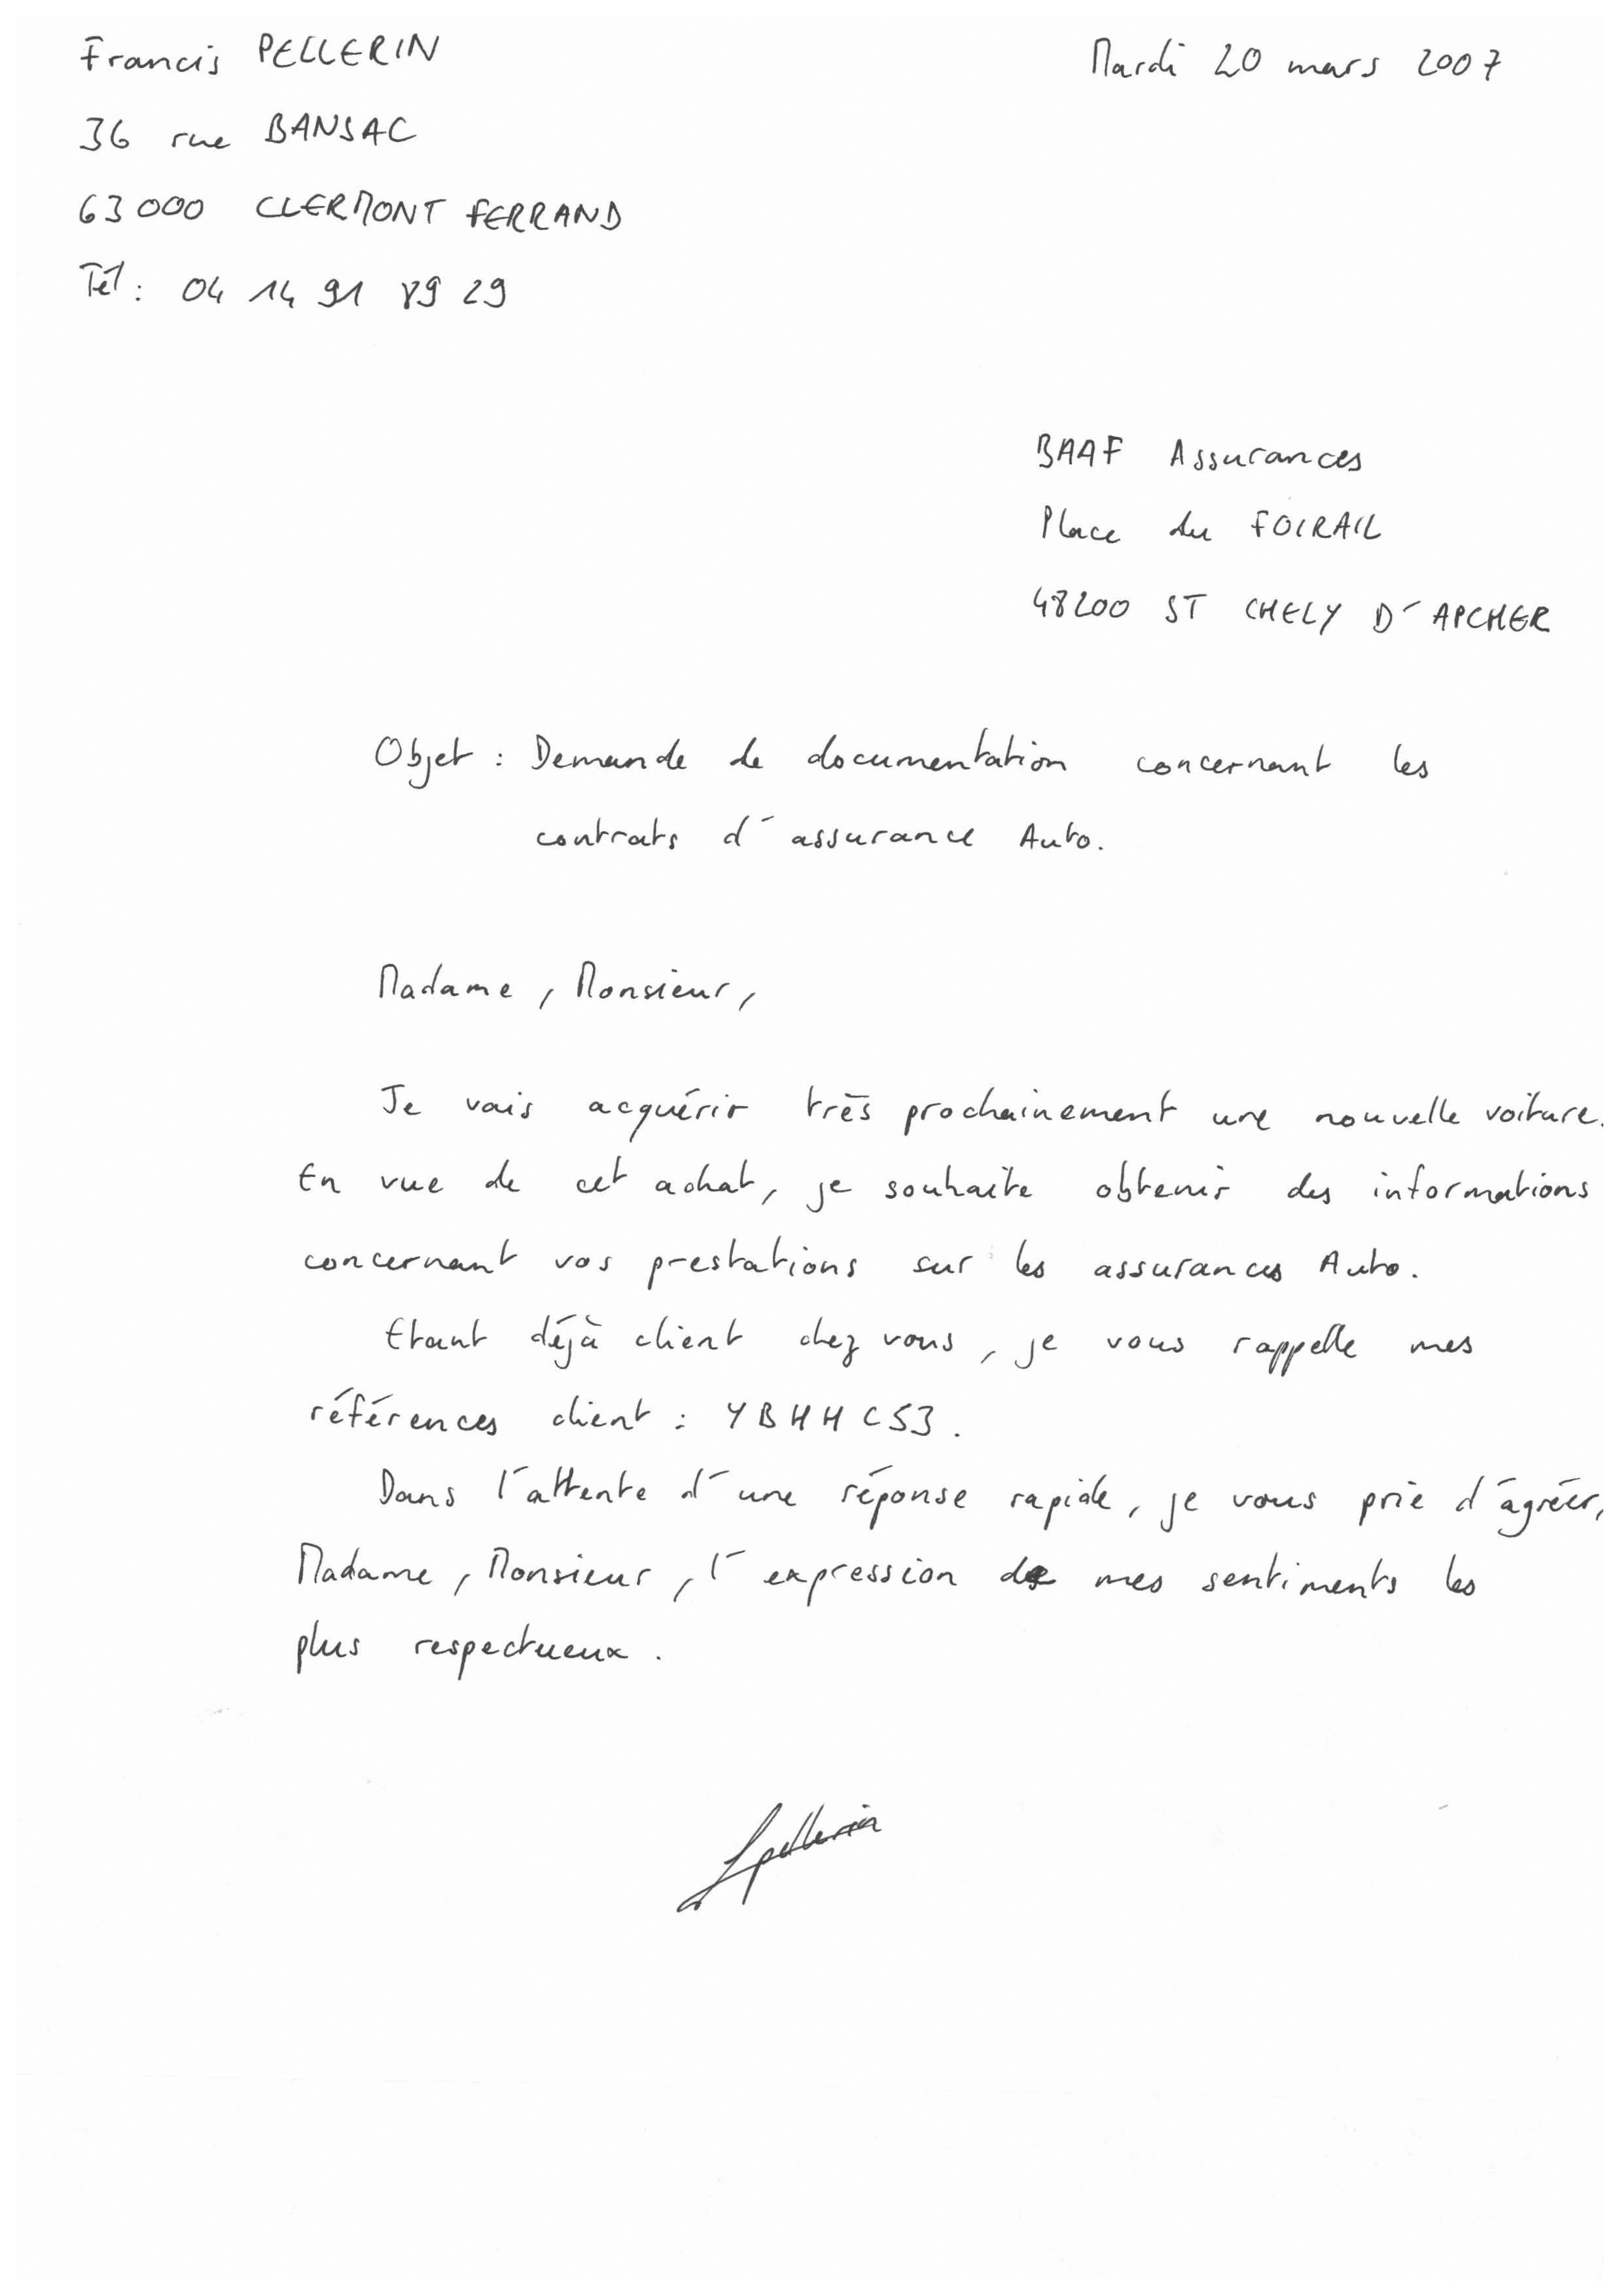 Francis PELLERIN
Mardi 20 mars 2007
36 rue BANSAC
63000 CLERMONT FERRAND
Tél : 04 14 91 89 29
BAAF Assurances
Place du FOIRAIL
48200 ST CHELY D'APCHER
Objet : Demande de documentation concernant les
contrats d'assurance Auto.
Madame, Monsieur,
Je vais acquérir très prochainement une nouvelle voiture.
En vue de cet achat, je souhaite obtenir des informations
concernant vos prestations sur les assurances Auto.
Etant déjà client chez vous, je vous rappelle mes
références client : YBHHC53.
Dans l'attente d'une réponse rapide, je vous prie d'agréer,
Madame, Monsieur, l'expression de mes sentiments les
plus respectueux.
fpellerin